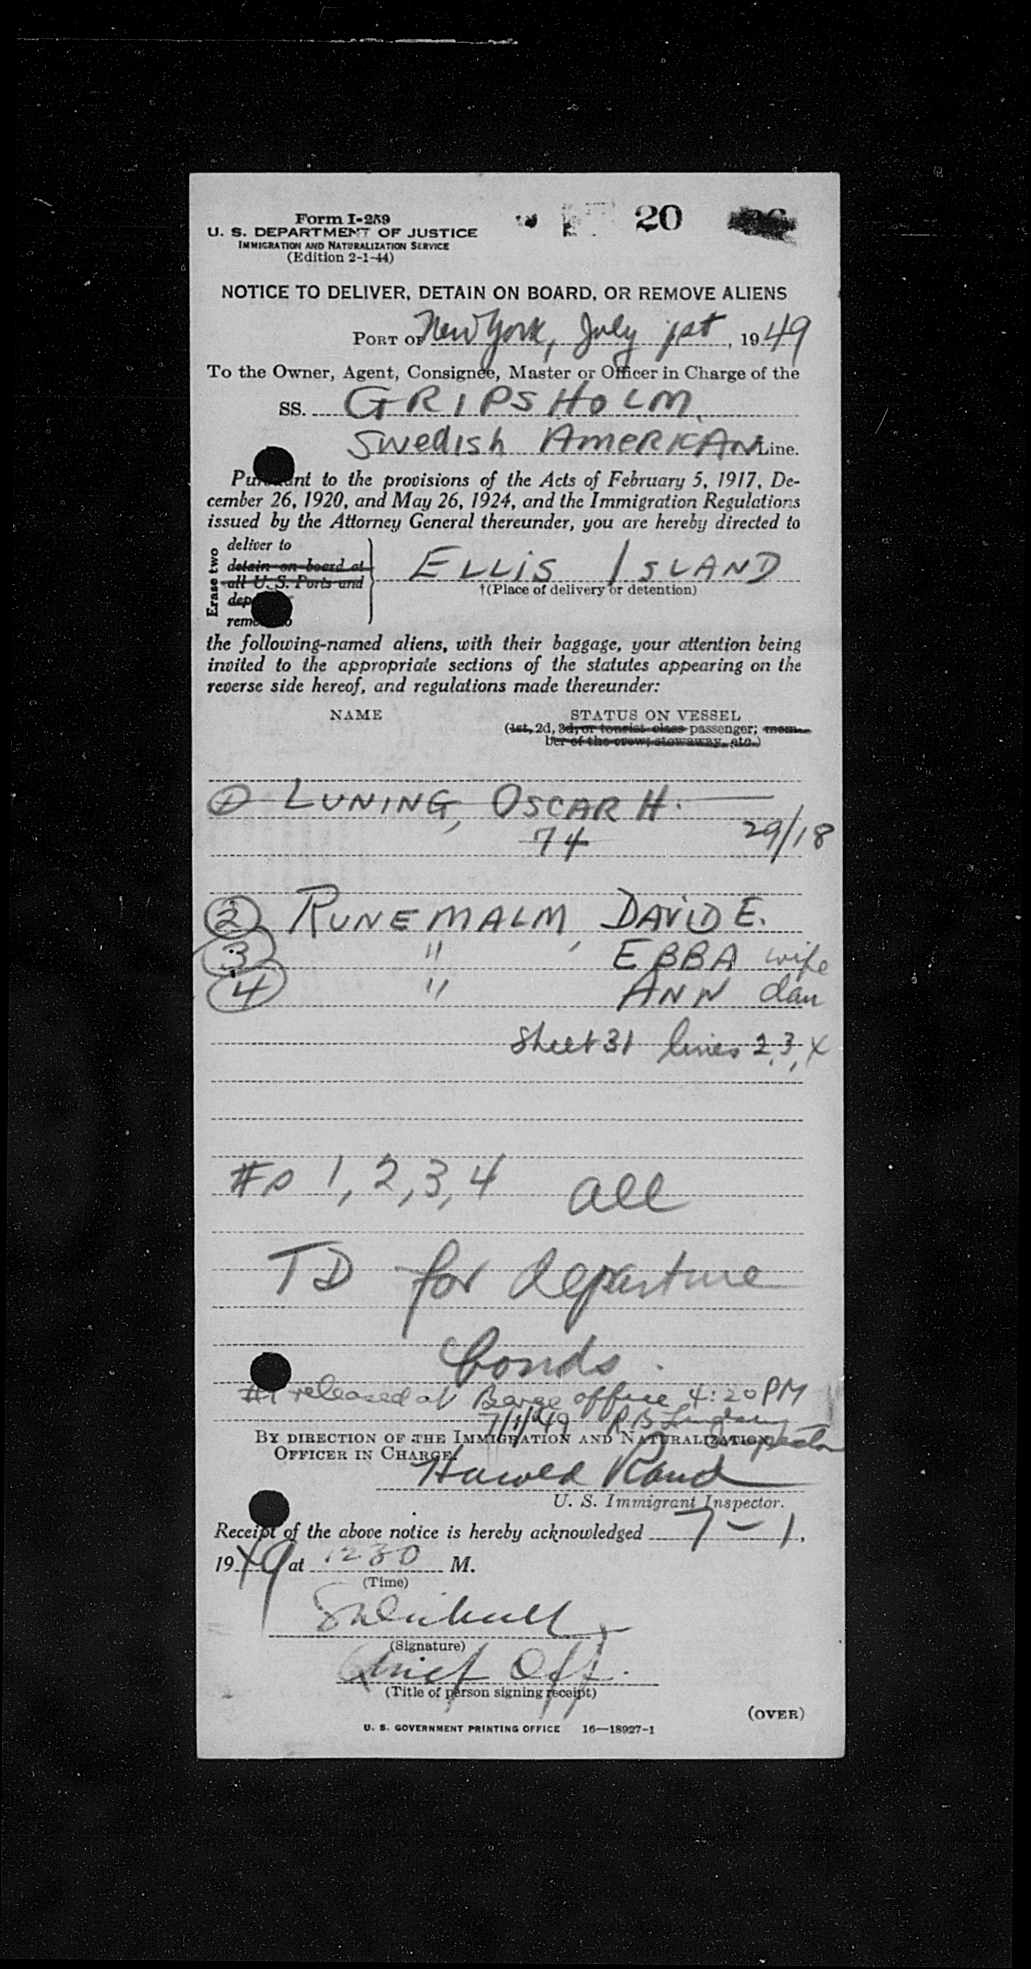 Form I-259
U. S. DEPARTMENT OF JUSTICE
IMMIGRATION AND NATURALIZATION SERVICE
(Edition 2-1-44)
20
NOTICE TO DELIVER, DETAIN ON BOARD, OR REMOVE ALIENS
PORT OF New York, July 1st, 1949
To the Owner, Agent, Consignee, Master or Officer in Charge of the
SS. GRIPSHOLM
Swedish AMERICAN Line.
Pursuant to the provisions of the Acts of February 5, 1917, De-
cember 26, 1920, and May 26, 1924, and the Immigration Regulations
issued by the Attorney General thereunder, you are hereby directed to
Erase two
deliver to
detain on board at
all U. S. Ports and
remove to
ELLIS ISLAND
†(Place of delivery or detention)
the following-named aliens, with their baggage, your attention being
invited to the appropriate sections of the statutes appearing on the
reverse side hereof, and regulations made thereunder:
NAME STATUS ON VESSEL
(1st, 2d, 3d, or tourist class passenger; mem-
ber of the crew; stowaway, etc.)
1 LUNING, OSCAR H.
74 29/18
2 RUNEMALM, DAVID E.
3 " EBBA wife
4 " ANN dau
Sheet 31 lines 2, 3, 4
#s 1, 2, 3, 4 all
TD for departure
bonds.
#1 released at Barge office 4:20 PM
7/1/49 R B Lindsay
Inspector
BY DIRECTION OF THE IMMIGRATION AND NATURALIZATION
OFFICER IN CHARGE:
Harold Rand
U. S. Immigrant Inspector.
Receipt of the above notice is hereby acknowledged 7-1,
1949 at 1230 M.
(Time)
(Signature)
Chief Off.
(Title of person signing receipt)
(OVER)
U. S. GOVERNMENT PRINTING OFFICE 16—18927-1